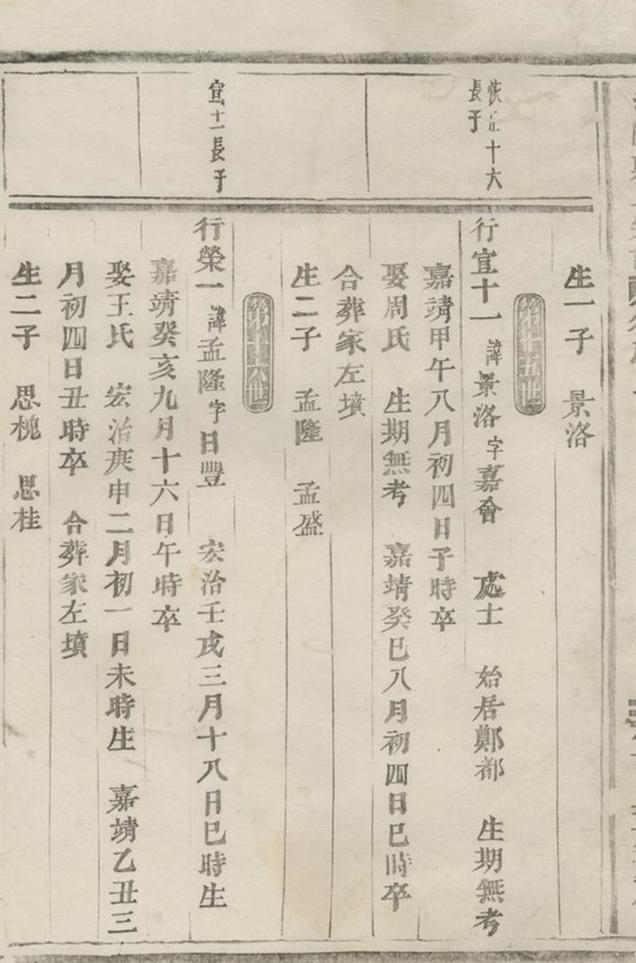 生一子　景洛
第十五世
長子
行宣十一　諱景洛字嘉會　處士　始居鄭都　生期無考
嘉靖甲午八月初四日子時卒
娶周氏　生期無考　嘉靖癸巳八月初四日巳時卒
合葬家左墳
生二子　孟隆　孟盛
第十六世
宣十一長子
行榮一　諱孟隆字日豐　宏治壬戌三月十八日巳時生
嘉靖癸亥九月十六日午時卒
娶王氏　宏治庚申二月初一日未時生　嘉靖乙丑三
月初四日丑時卒　合葬家左墳
生二子　思槐　思桂